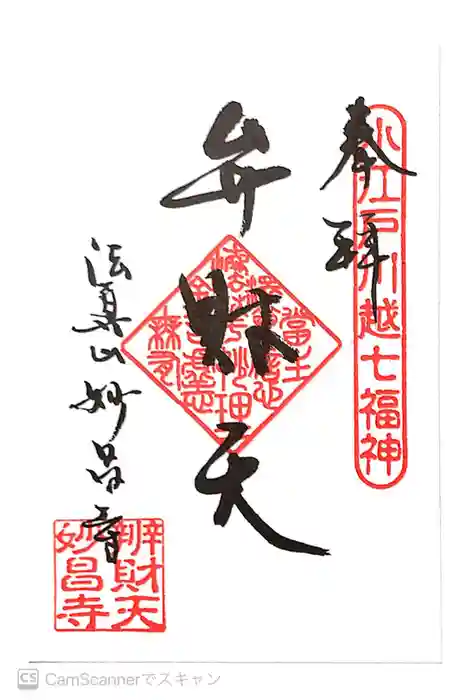 奉拝
小江戸川越七福神
弁財天
法眞山妙昌寺
辨財天
妙昌寺
CS CamScannerでスキャン